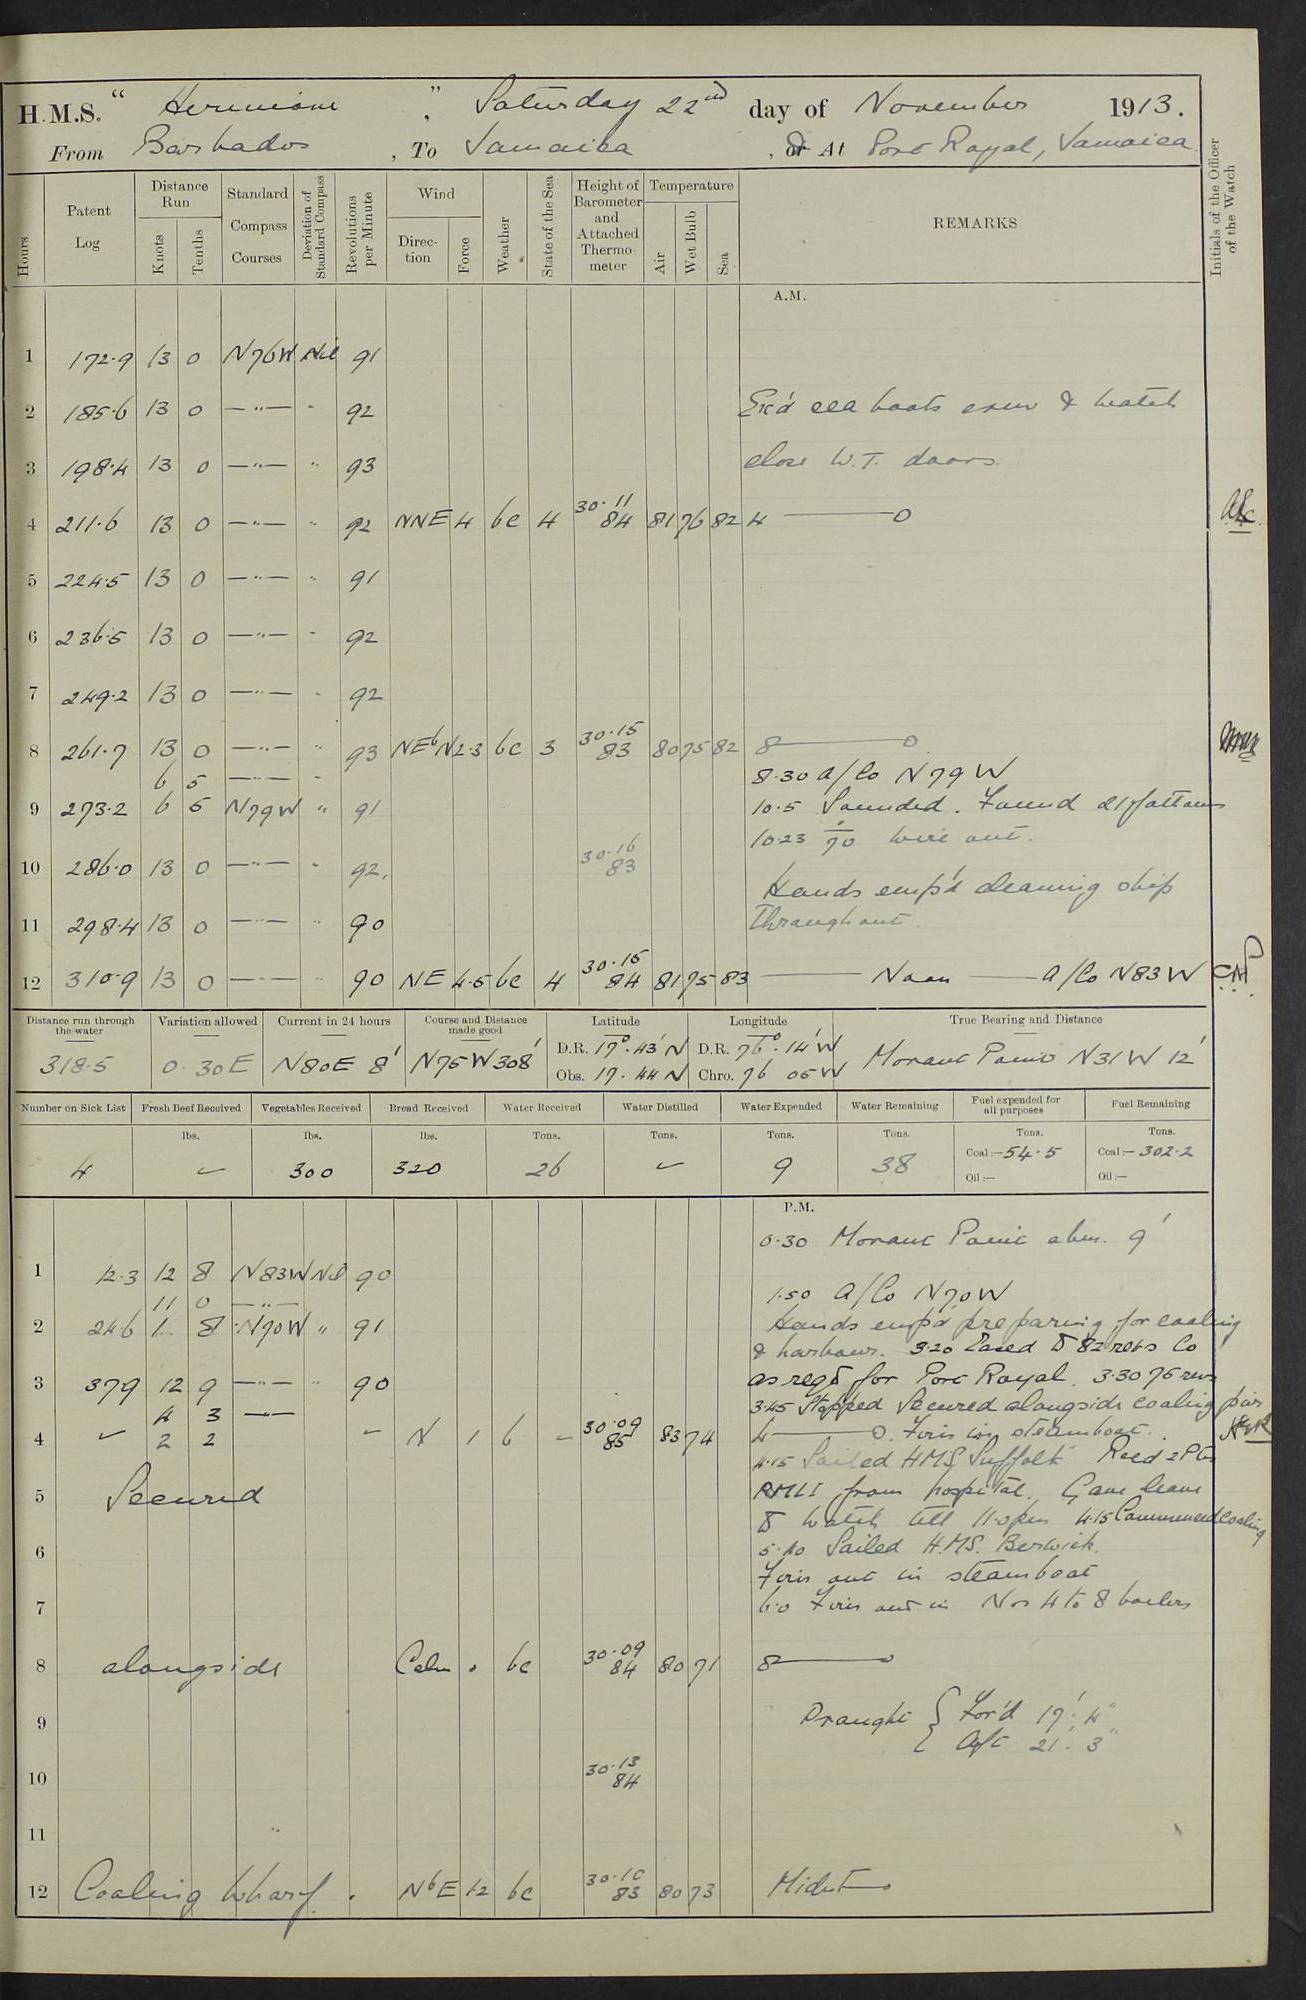 H.M.S. "Hermione", Saturday 22nd day of November 1913.
From Barbados, To Jamaica, or At Port Royal, Jamaica
Hours
Patent Log
Distance Run
Knots
Tenths
Standard Compass Courses
Deviation of Standard Compass
Revolutions per Minute
Wind
Direction
Force
Weather
State of the Sea
Height of Barometer and Attached Thermometer
Temperature
Air
Wet Bulb
Sea
REMARKS
Initials of the Officer of the Watch
A.M.
1 172.9 13 0 N76W Nil 91
2 185.6 13 0 —"— " 92 Ex'd sea boats crew & watch
3 198.4 13 0 —"— " 93 close W.T. doors.
4 211.6 13 0 —"— " 92 NNE 4 bc 4 30.11 84 81 76 82 4 ——— 0
5 224.5 13 0 —"— " 91
6 236.5 13 0 —"— " 92
7 249.2 13 0 —"— " 92
8 261.7 13 0 —"— " 93 NEbN 2.3 bc 3 30.15 83 80 75 82 8 ——— 0
6 5 —"— " 8.30 A/Co N79W
9 273.2 6 5 N79W " 91 10.5 Sounded. Found
10.23 70 wire out.
10 286.0 13 0 —"— " 92. 30.16 83
Hands emp'd cleaning ship
11 298.4 13 0 —"— " 90 throughout
12 310.9 13 0 —"— 90 NE 4.5 bc 4 30.15 84 81 75 83 —— Noon —— A/Co N83W
Distance run through the water 318.5
Variation allowed 0.30E
Current in 24 hours N80E 8'
Course and Distance made good N75W 308'
Latitude D.R. 17°.43'N Obs. 17.44N
Longitude D.R. 76°.14'W Chro. 76 05W
True Bearing and Distance Morant Point N31W 12'
Number on Sick List 4
Fresh Beef Received lbs. ✓
Vegetables Received lbs. 300
Bread Received lbs. 320
Water Received Tons. 26
Water Distilled Tons. ✓
Water Expended Tons. 9
Water Remaining Tons. 38
Fuel expended for all purposes Tons. Coal:—54.5 Oil:—
Fuel Remaining Tons. Coal:—302.2 Oil:—
P.M.
0.30 Morant Point abm. 9'
1 12.3 12 8 N83W Nil 90
11 0 —"— 1.50 A/Co N70W
2 24.6 1 8 N70W " 91 Hands emp'd preparing for coaling
& harbour. 3.20 Eased to 82 revs Co
3 37.9 12 9 —"— " 90 as reqd for Port Royal. 3.30 76 revs
4 3 —"— 3.45 Stopped Secured alongside coaling pier
4 ✓ 2 2 – N 1 b – 30.09 85 83 74 4 ——— 0. Fires in steamboat.
4.15 Sailed HMS Suffolk Recd 2 Ptes
5 Secured RMLI from hospital. Gave leave
to watch till 11.0pm 4.15 Commenced coaling
6 5.40 Sailed H.M.S. Berwick.
Fires out in steamboat
7 6.0 Fires out in Nos 4 to 8 boilers
8 alongside Calm 0 bc 30.09 84 80 71 8 ———
9 Draught { For'd 17' 4"
Aft 21' 3"
10 30.13 84
11
12 Coaling Wharf. NbE 1.2 bc 30.10 83 80 73 Midnt ——